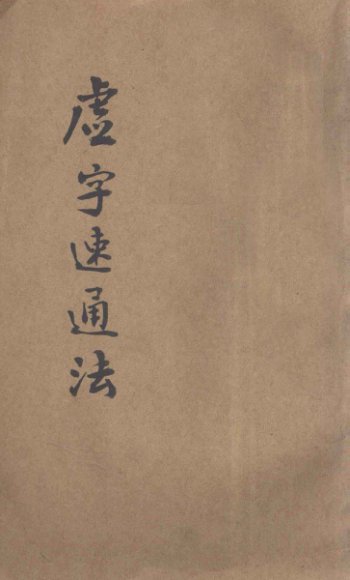 虚字速通法